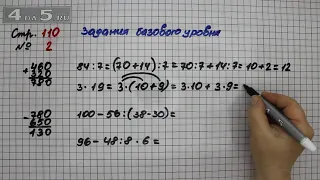 4 на 5.ru
Стр. 110
№ 2
Задания базового уровня
+ 460
320
780
- 780
650
130
84 : 7 = (70+14) : 7 = 70 : 7 + 14 : 7 = 10 + 2 = 12
3 · 19 = 3 · (10+9) = 3 · 10 + 3 · 9 =
100 - 56 : (38-30) =
96 - 48 : 8 · 6 =